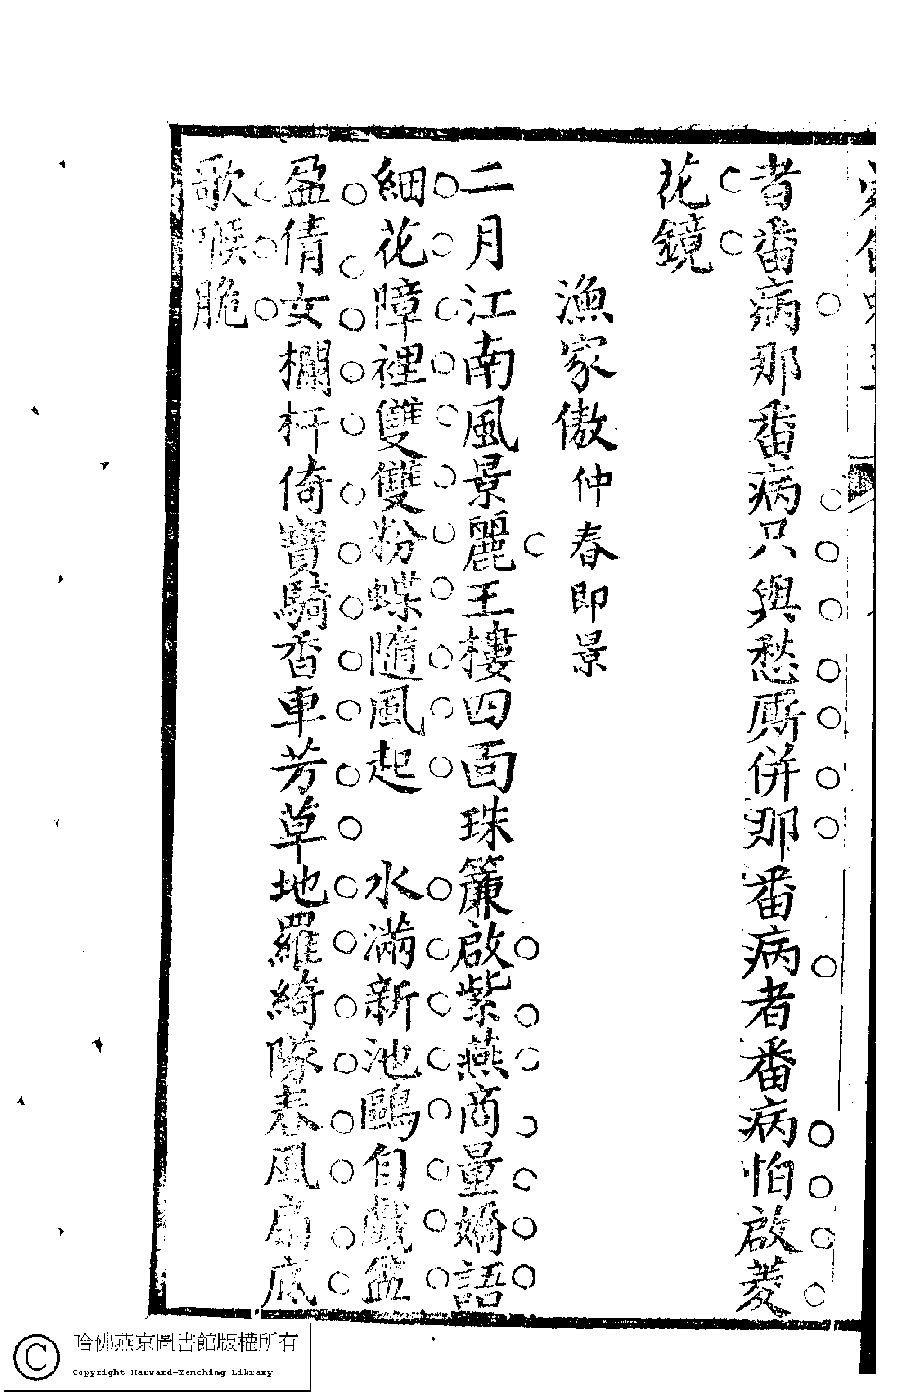 者番病那番病只與愁厮併那番病者番病怕啟菱
花鏡
漁家傲仲春即景
二月江南風景麗玉樓四面珠簾啟紫燕商量嬌語
細花障裡雙雙粉蝶隨風起 水滿新池鷗自戲盈
盈倩女欄杆倚寶騎香車芳草地羅綺隊春風扇底
歌喉脆
哈佛燕京圖書館版權所有
Copyright Harvard-Yenching Library